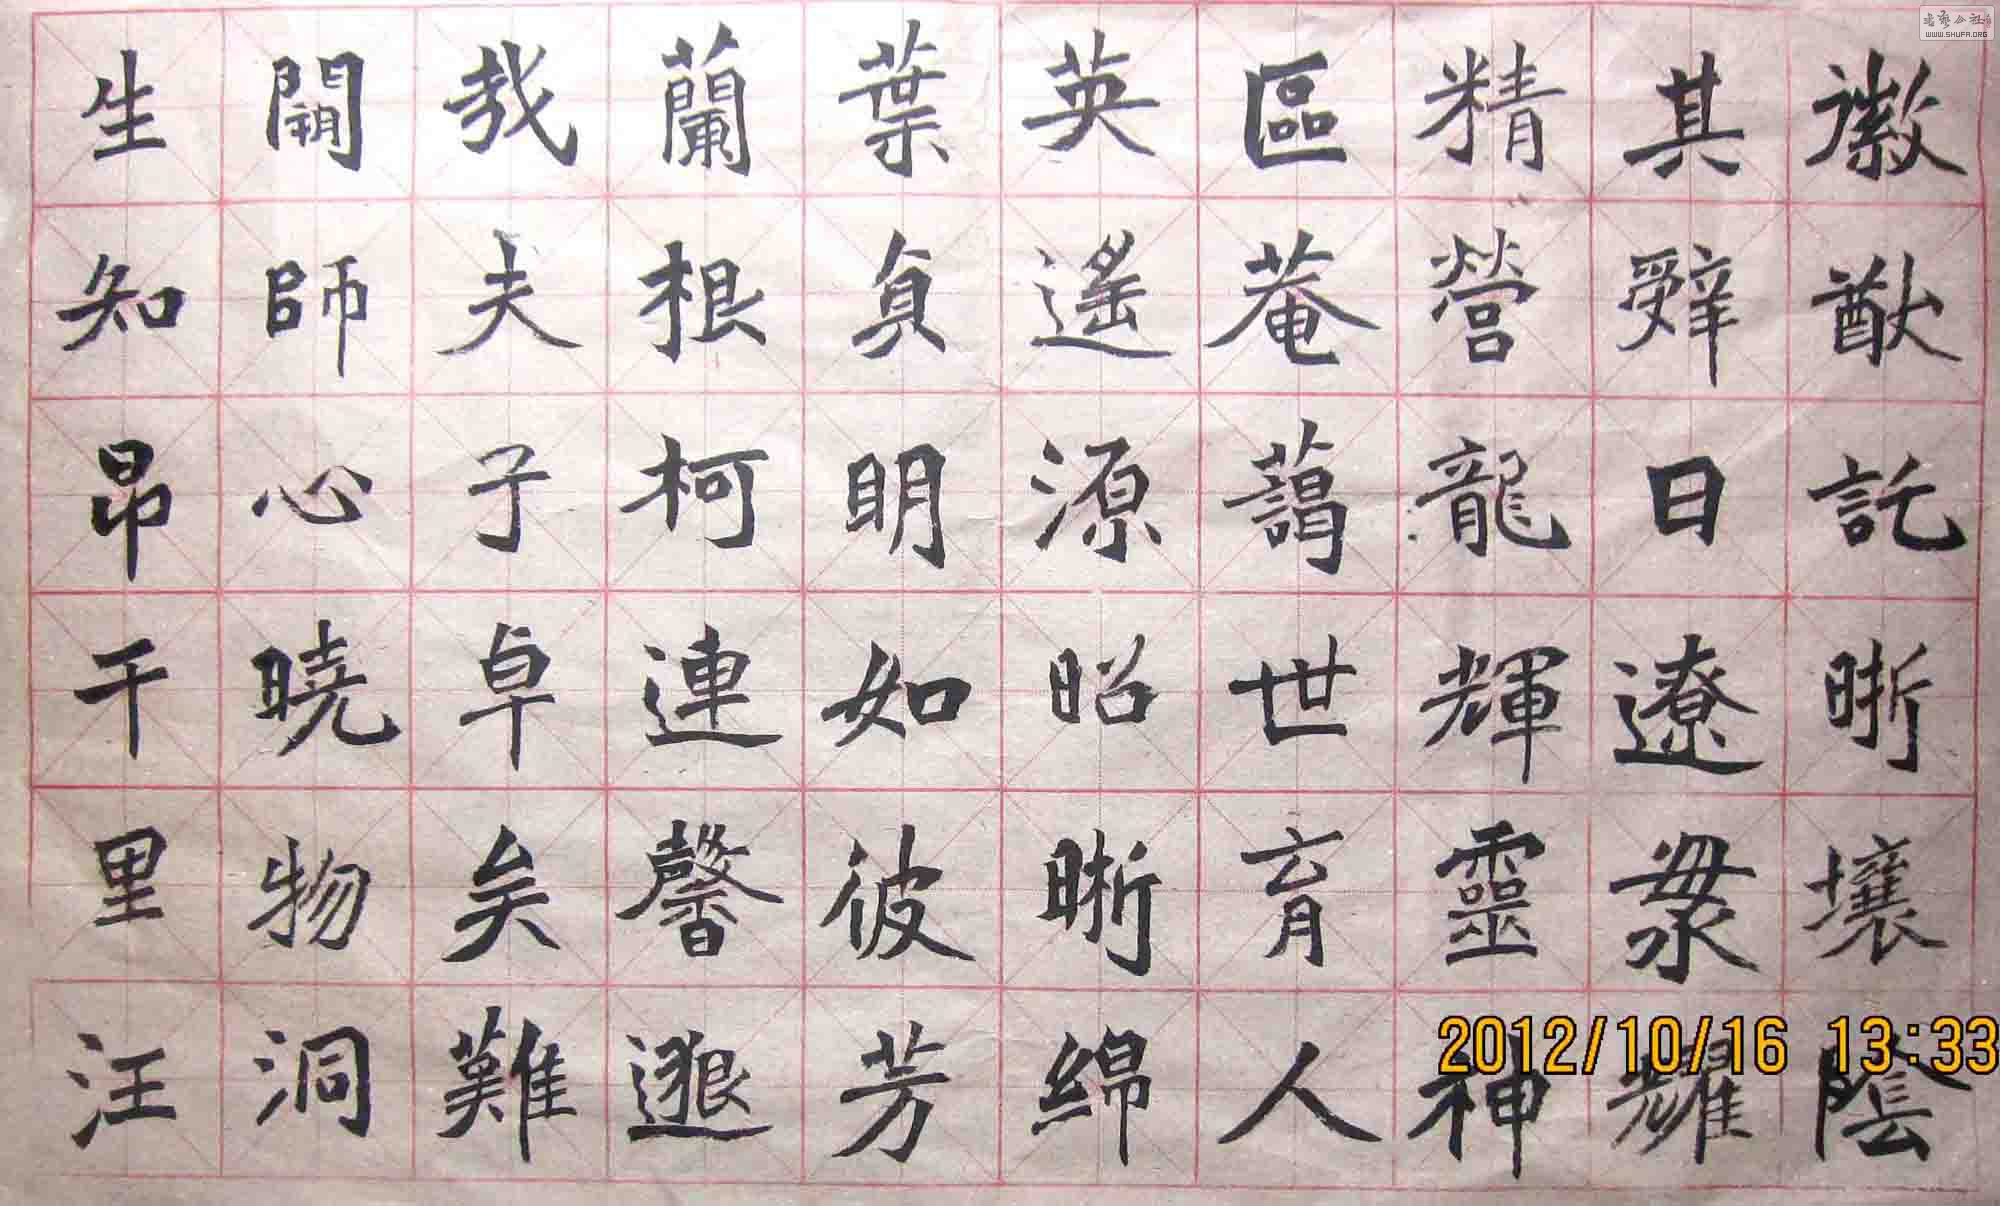 徽猷託晣壤陰
其辭日遼衆耀
精營龍輝靈神
區菴藹世育人
英遙源昭晣綿
葉貞明如彼芳
蘭根柯連馨遐
哉夫子卓矣難
開師心曉物洞
生知昂千里汪
2012/10/16 13:33
WWW.SHUFA.ORG